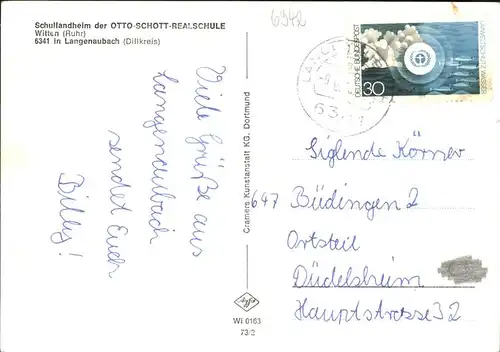 Schullandheim der OTTO-SCHOTT-REALSCHULE
Witten (Ruhr)
6341 in Langenaubach (Dillkreis)
Viele Grüße aus
Langenaubach
sendet Euch
Billy!
Cramers Kunstanstalt KG. Dortmund
WI 0163
73/2
6342
DEUTSCHE BUNDESPOST
30
Siglende Körner
647 Büdingen 2
Ortsteil
Düdelsheim
Hauptstrasse 32